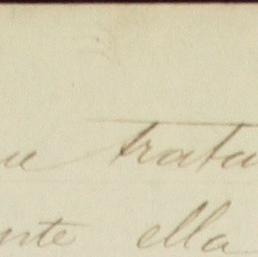 ue trata
nte ella